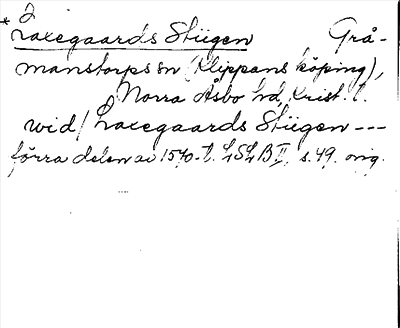 * 2
Laxegaards Stiigen Grå-
manstorps sn (Klippans köping),
Norra Åsbo hd, Krist. l.
wid / Laxegaards Stiigen ---
förra delen av 1570-t. LSLB II, s. 49. orig.